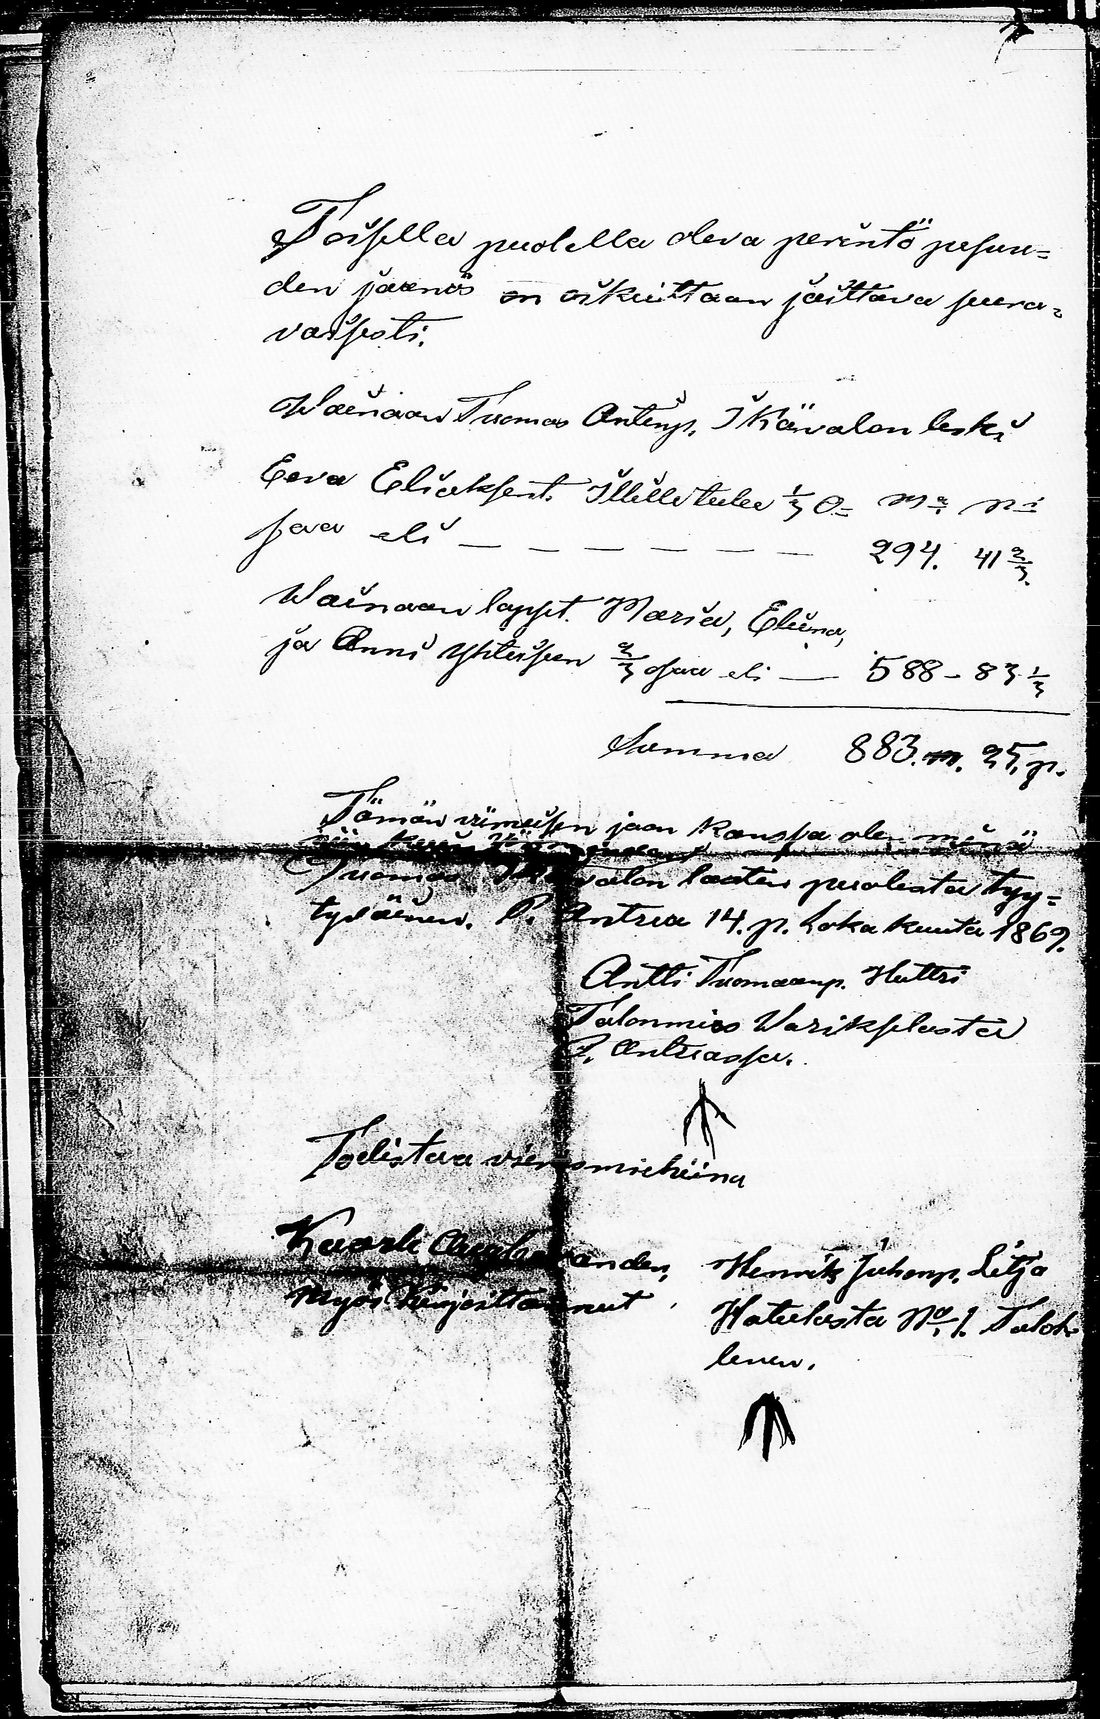 Toisella puolella oleva perintö pesun-
den jäännös on oikeuttaan jaettava seura-
vaisesti.
Wainaan Tuomas Antinp. Ikävalon leski
Eeva Eliaksent. Ikälle tulee 1/3 O= Ma ni
saa eli — — — — — — — 294. 41 2/3.
Wainaan lapset. Maria, Eliina,
ja Anni Yhteiseen 2/3 osaa eli — 588 - 83 1/3
Summa 883. m. 25. p.
Tämän viimeisen jaon kanssa olen minä
niin kuin
Tuomas valon lasten puolesta tyy=
tyväinen. P. Antrea 14. p. Lokakuuta 1869.
Antti Tuomaanp. Huttri
Talonmies Warikselasta
P. Antreassa.
Todistava vierasmiehinä
Kaarle
Henrik Juhonp. Litja
Myös Kirjoittanut
Hatulasta No 1. Talol-
linen.